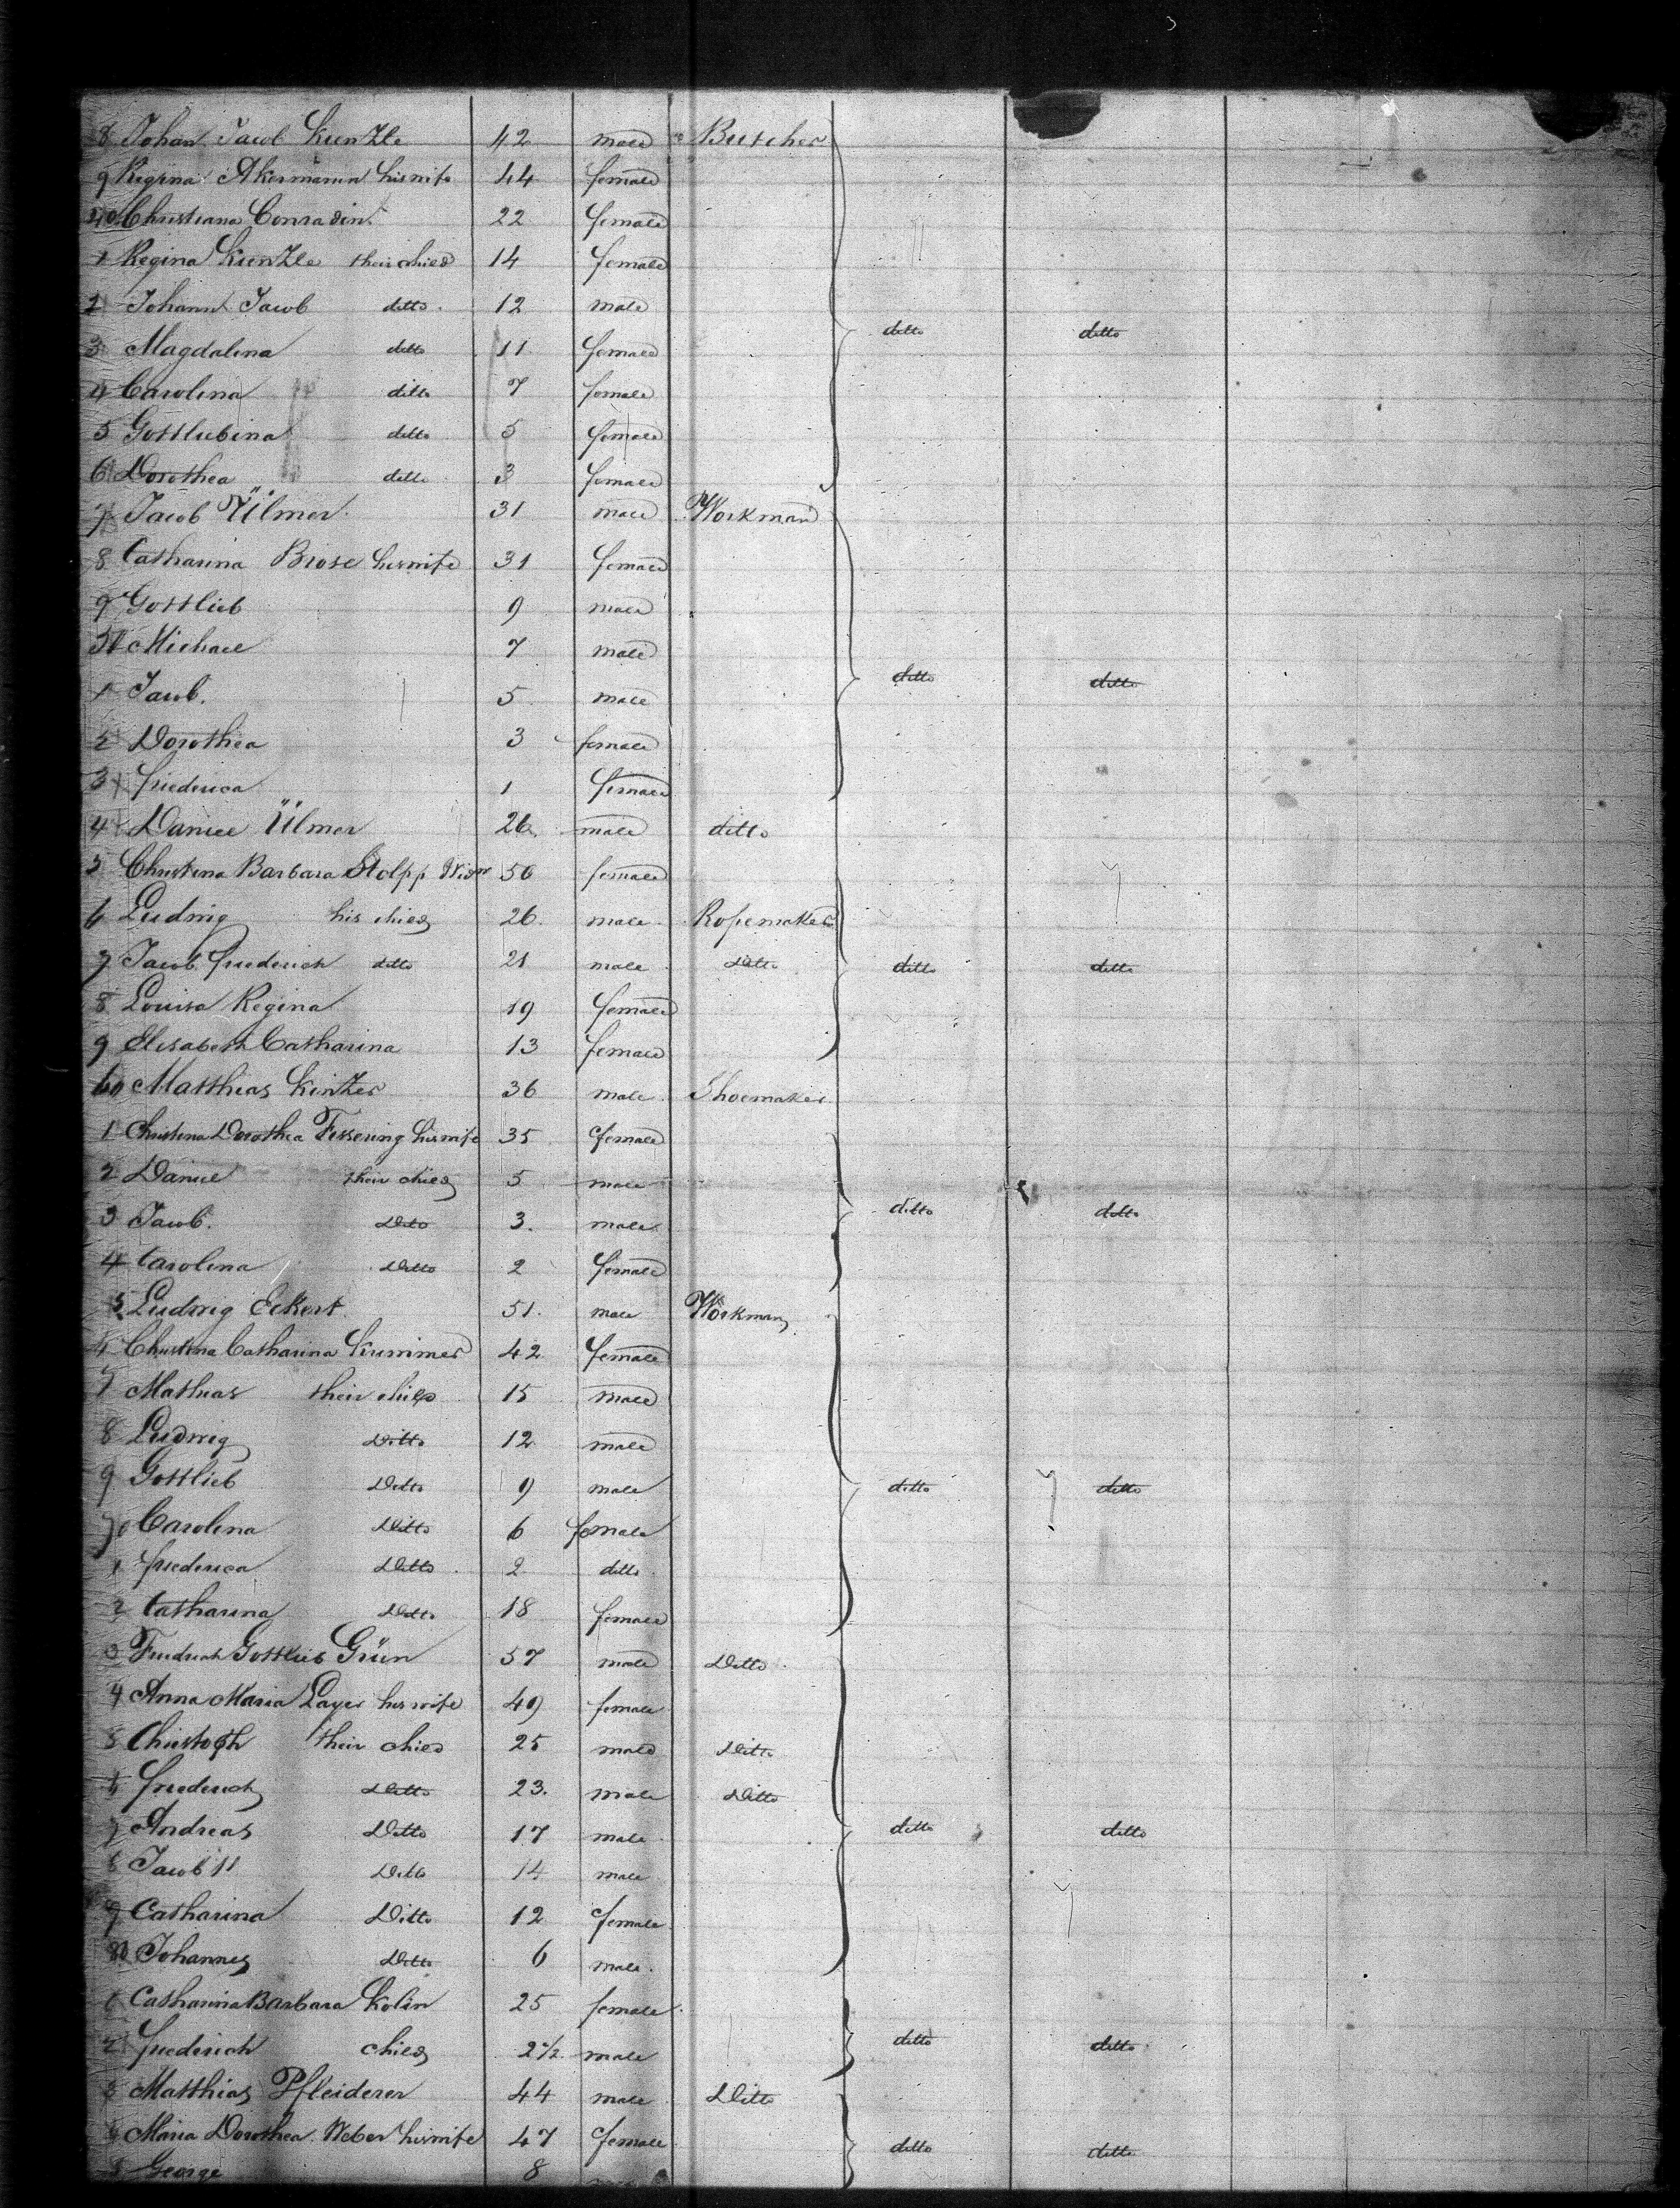 8 Johan Jacob Kunzle 42 male Butcher
9 Regina Akermann his wife 44 female
40 Christiana Conradin 22 female
1 Regina Kunzle their child 14 female
2 Johann Jacob ditto 12 male
ditto ditto
3 Magdalena ditto 11 female
4 Carolina ditto 7 female
5 Gottliebina ditto 5 female
6 Dorothea ditto 3 female
7 Jacob Ülmer 31 male Workman
8 Catharina Brose his wife 31 female
9 Gottlieb 9 male
50 Michael 7 male
1 Jacob. 5 male ditto ditto
2 Dorothea 3 female
3 Friederica 1 female
4 Daniel Ülmer 26 male ditto
5 Christina Barbara Stolpp Widw 50 female
6 Ludwig his child 26. male Ropemaker
7 Jacob Friederich ditto 21 male ditto ditto ditto
8 Louisa Regina 19 female
9 Elisabeth Catharina 13 female
60 Matthias Kinzer 36 male Shoemaker
1 Christina Dorothea Fessering his wife 35 female
2 Daniel their child 5 male
3 Jacob. Ditto 3. male ditto ditto
4 Carolina Ditto 2 female
5 Ludwig Eckert 51. male Workman
6 Christina Catharina Kummer 42 female
7 Mathias their child 15 male
8 Ludwig Ditto 12 male
9 Gottlieb Ditto 9 male ditto ditto
70 Carolina Ditto 6 female
1 Friederica Ditto 2 ditto
2 Catharina Ditto 18 female
3 Friedrich Gottlieb Grün 57 male Ditto
4 Anna Maria Layer his wife 49 female
5 Christoph their child 25 male Ditto
6 Friederich Ditto 23. male Ditto
7 Andreas Ditto 17 male ditto ditto
8 Jacob Ditto 14 male
9 Catharina Ditto 12 female
80 Johannes Ditto 6 male.
1 Catharina Barbara Kolin 25 female
2 Friederich child 2½ male ditto ditto
3 Matthias Pfleiderer 44 male Ditto
4 Maria Dorothea Weber his wife 47 female ditto ditto
5 George 8